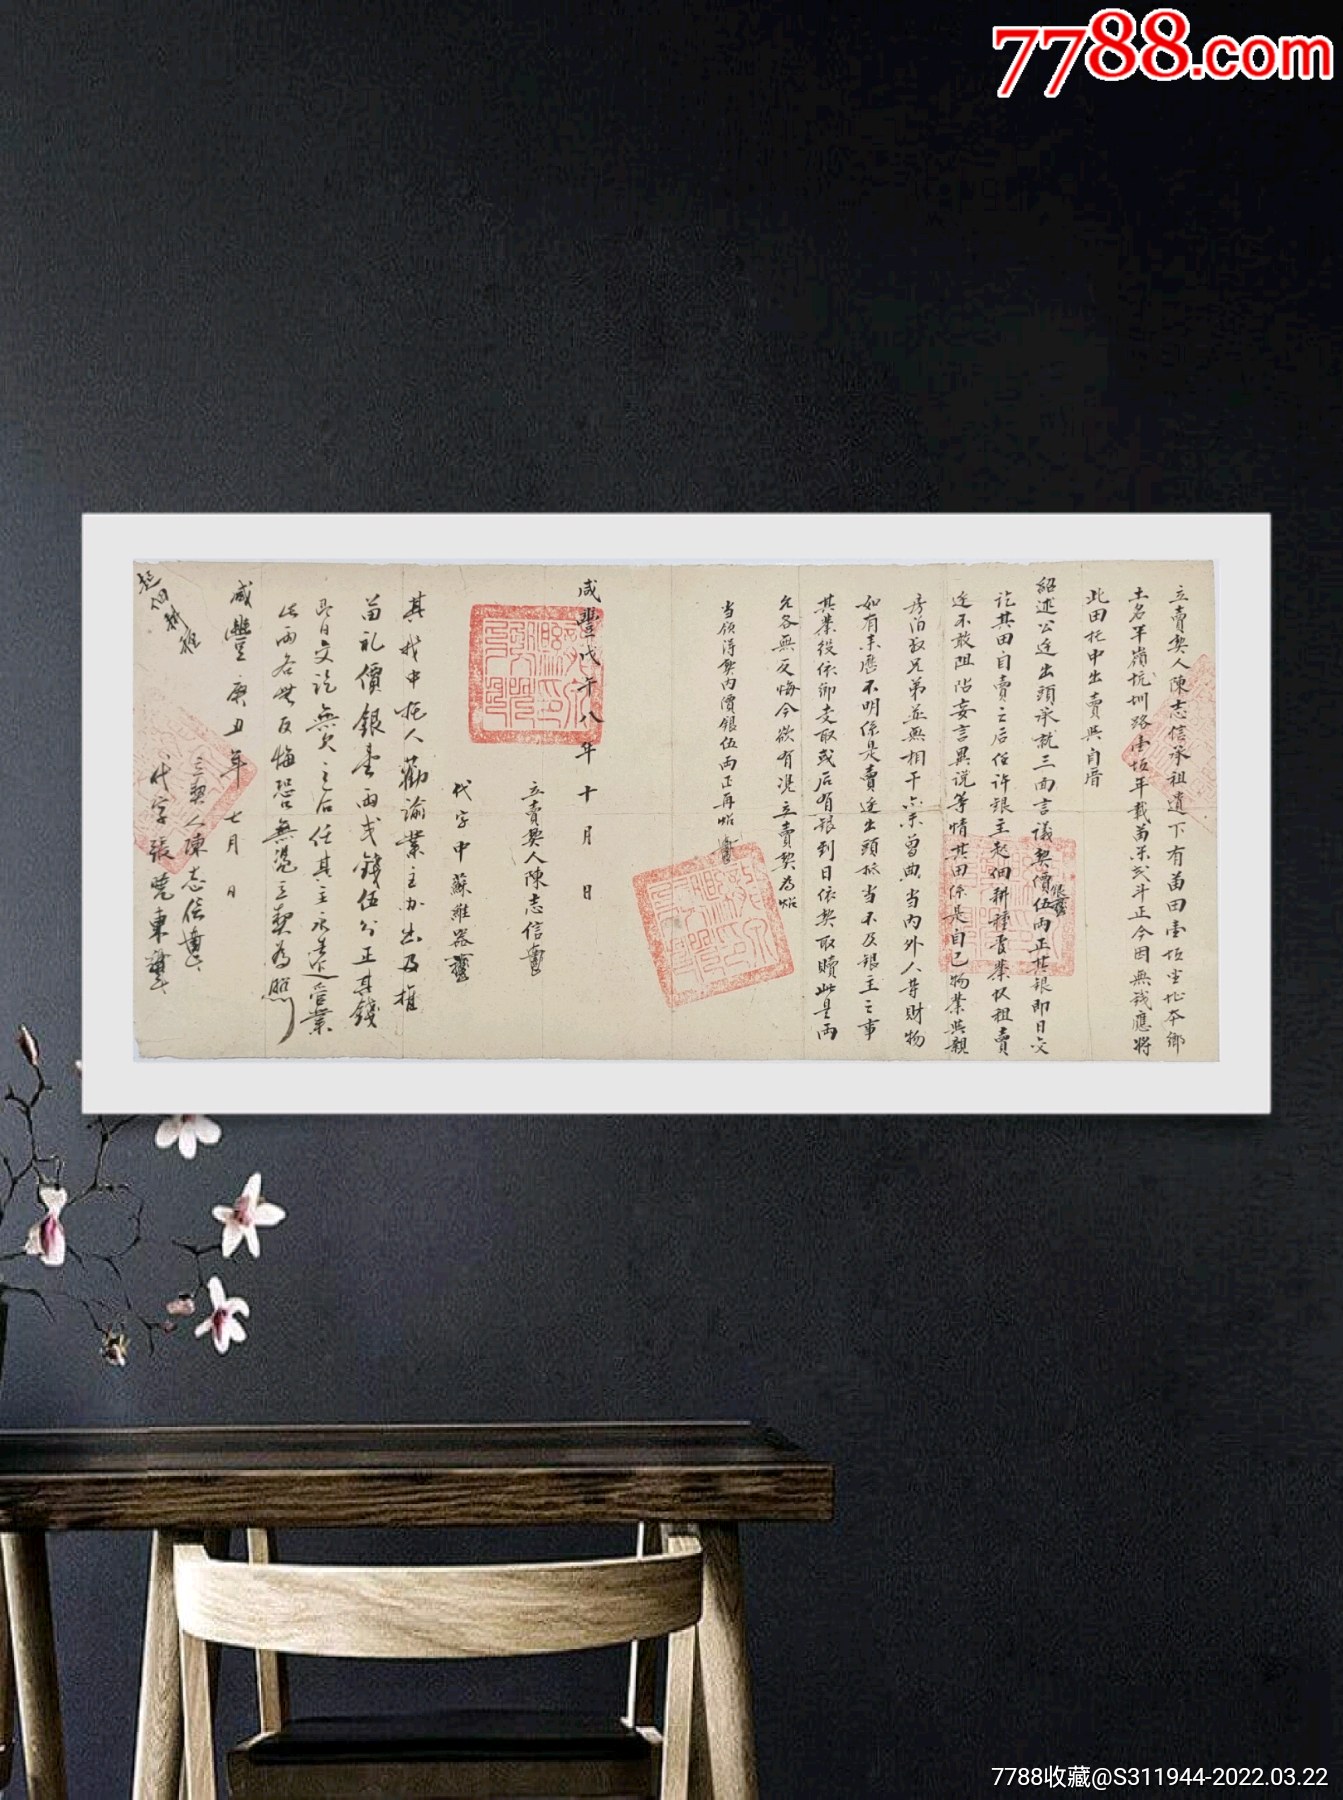 7788.com
立賣契人陳志信承祖遺下有苗田壹坵坐址本鄉
土名半嶺坑圳路壹坵年載苗米弍斗正今因無錢應將
此田托中出賣與自厝
紹述公邊出頭承就三面言議契價銀伍兩正其銀即日交
訖其田自賣之后任許銀主起佃耕種管業收租賣
邊不敢阻占妄言異説等情其田係是自己物業與親
房伯叔兄弟並無相干亦未曾典當內外人等財物
如有来歴不明係是賣邊出頭抵當不及銀主之事
其業役依卽支取或后有銀到日依契取贖此是兩
允各無反悔今欲有凭立賣契為炤
当領得契内價銀伍兩正再炤
咸豐戊午八年十月日
立賣契人陳志信
代字中蘇
其找中托人勸諭業主办出及推
苗礼價銀壹兩弍錢伍分正其錢
即日交訖無欠之后任其主永遠管業
此兩各無反悔恐口無凭立契為照
咸豐 丑年七月日
立契人陳志信
代字張 東
起佃耕種
7788收藏@S311944-2022.03.22